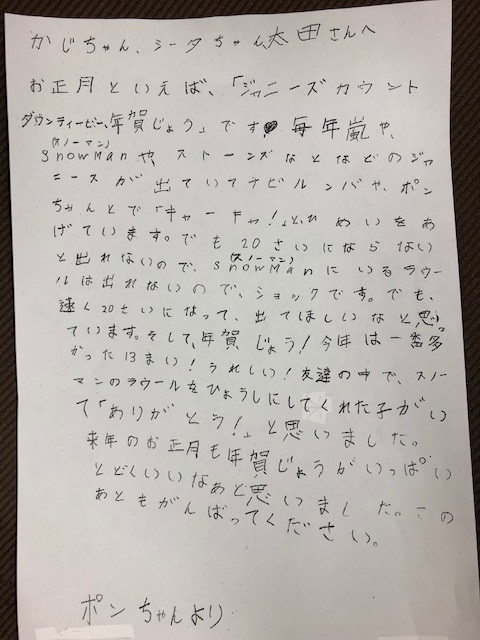 かじちゃん、シータちゃん太田さんへ
お正月といえば、「ジャニーズカウント
ダウンティービー、年賀じょう」です。毎年嵐や、
(スノーマン)
snowManや、ストーンズなどなどのジャ
ニースが出ていてナビルンバや、ポン
ちゃんとで「キャーキャ!」と、ひめいをあ
げています。でも20さいにならない
(スノーマン)
と出れないので、snowManにいるラウー
ルは出れないので、ショックです。でも、
速く20さいになって、出てほしいなと思っ
ています。そして、年賀じょう!今年は一番多
かった13まい!うれしい!友達の中で、スノー
マンのラウールをひょうしにしてくれた子がい
て「ありがとう!」と思いました。
来年のお正月も年賀じょうがいっぱい
とどくいいなあと思いました。この
あともがんばってください。
ポンちゃんより